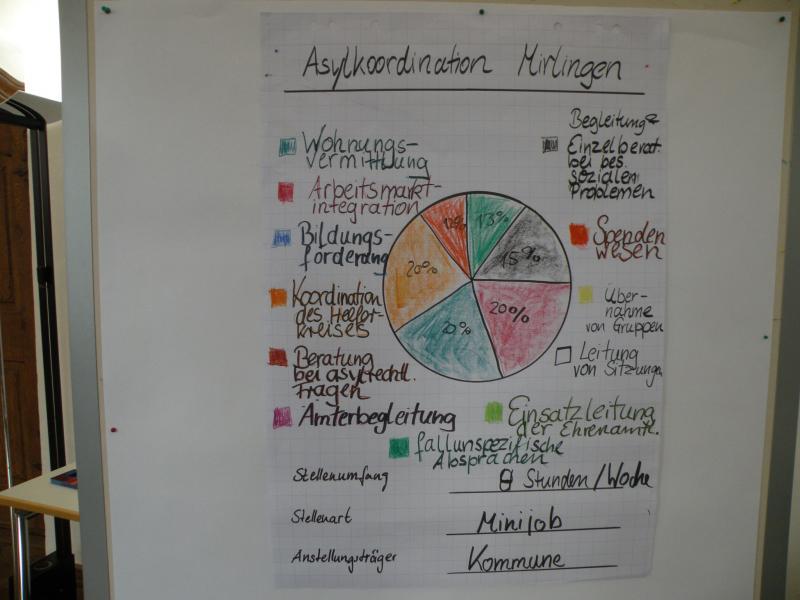 Asylkoordination Mirlingen
Wohnungs-
vermittlung
Arbeitsmarkt-
integration
Bildungs-
förderung
Koordination
des Helfer-
kreises
Beratung
bei asylrechtl.
Fragen
Ämterbegleitung
Begleitung &
Einzelberat.
bei bes.
sozialen
Problemen
Spenden
wesen
Über-
nahme
von Gruppen
Leitung
von Sitzungen
Einsatzleitung
der Ehrenamtl.
fallunspezifische
Absprachen
12%
13%
15%
20%
20%
20%
Stellenumfang
8 Stunden/Woche
Stellenart
Minijob
Anstellungsträger
Kommune